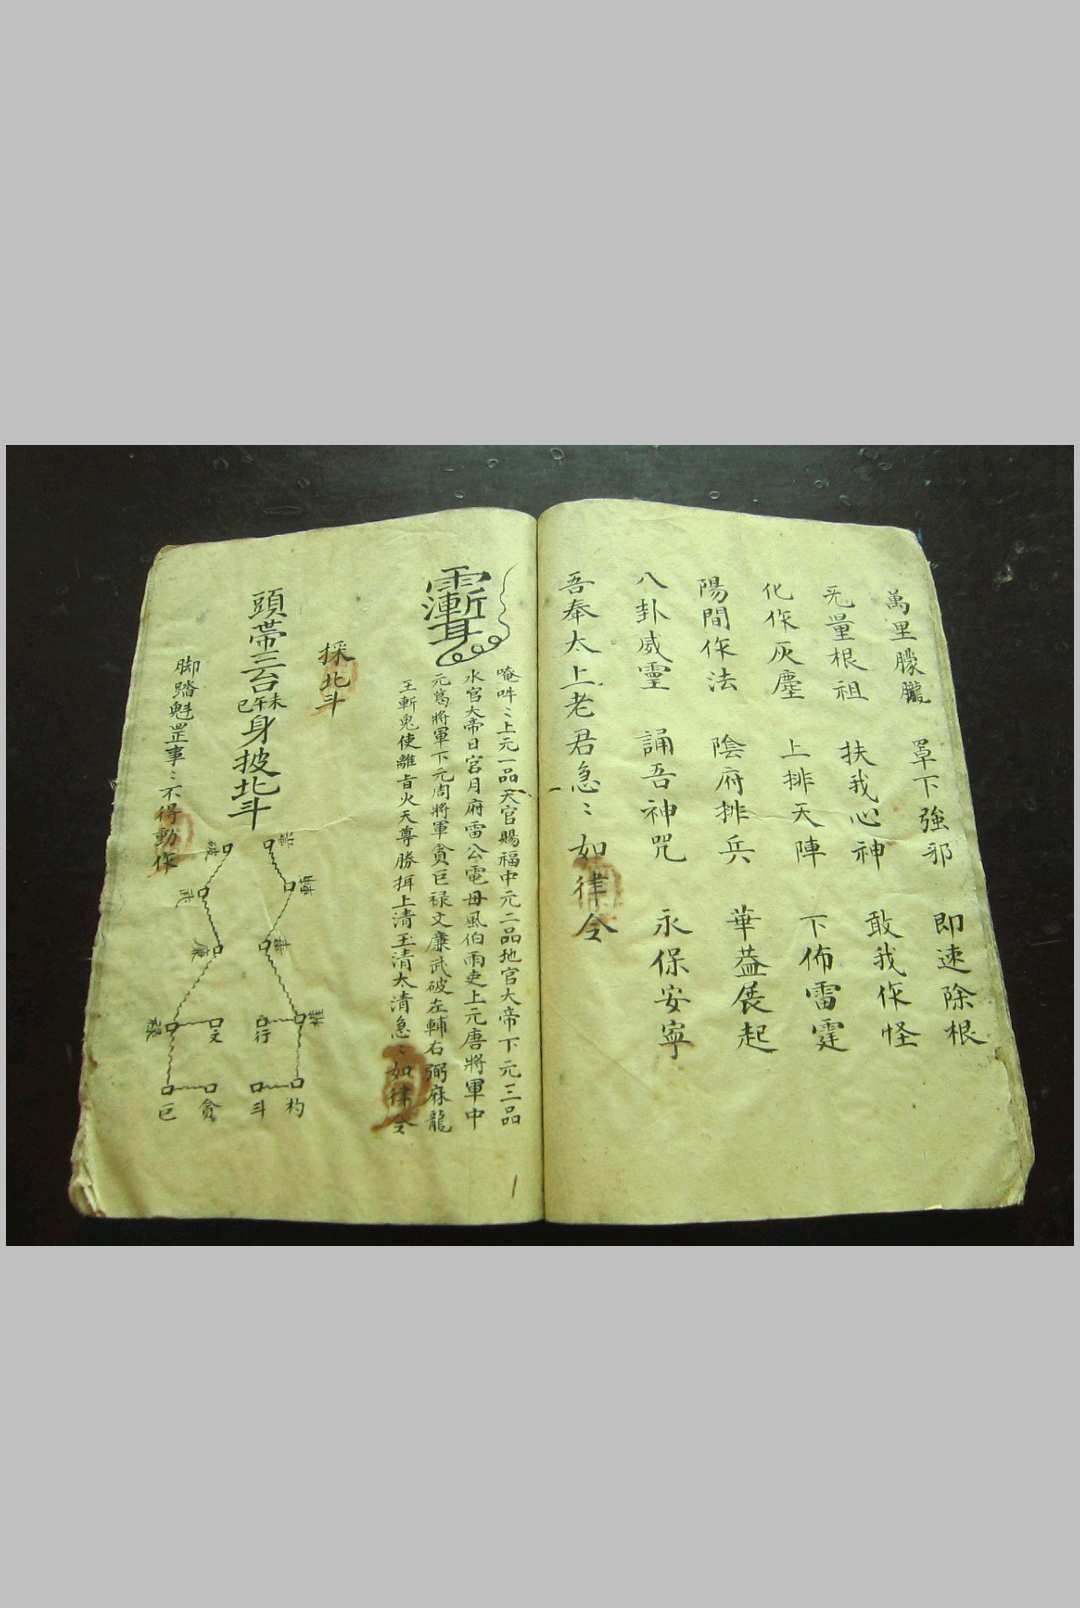 萬里朦朧 罩下強邪 即速除根
旡量根祖 扶我心神 敢我作怪
化作灰塵 上排天陣 下佈雷霆
陽間作法 陰府排兵 華蓋展起
八卦威靈 誦吾神咒 永保安寧
吾奉太上老君急〻如律令
唵吽〻上元一品天官賜福中元二品地官大帝下元三品
水官大帝日宮月府雷公電母風伯雨吏上元唐將軍中
元葛將軍下元周將軍貪巨祿文廉武破左輔右弼麻龍
王斬鬼使離音火天尊勝揖上清玉清太清急〻如律令
採北斗
頭帶三台巳午未身披北斗
脚踏魁罡事〻不得動作
破
武
廉
祿
文
巨
貪
行
斗
杓